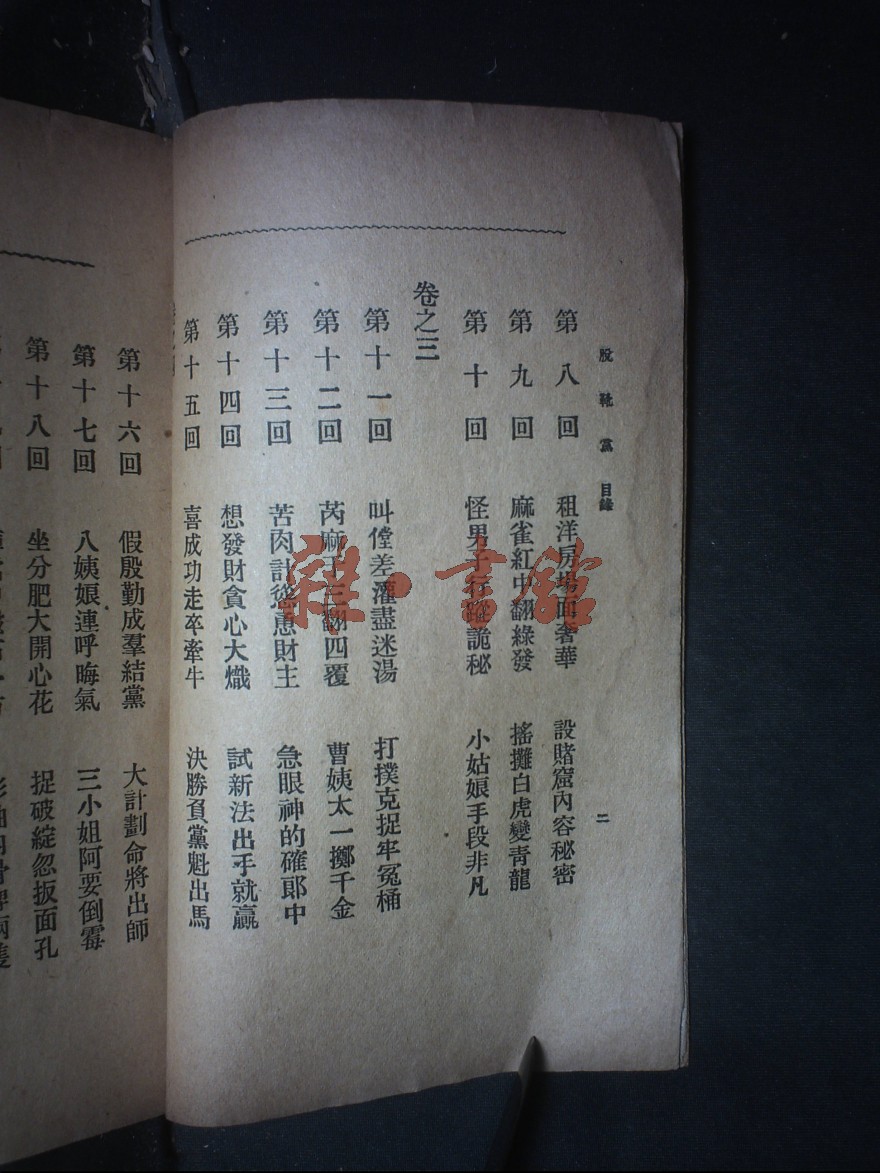 脫靴黨 目錄 二
第八回 租洋房場面奢華 設賭窟內容秘密
第九回 麻雀紅中翻綠發 搖攤白虎變青龍
第十回 怪男子行蹤詭秘 小姑娘手段非凡
卷之三
第十一回 叫儅差灌盡迷湯 打撲克捉牢冤桶
第十二回 芮麻子三翻四覆 曹姨太一擲千金
第十三回 苦肉計慫恿財主 急眼神的確郞中
第十四回 想發財貪心大熾 試新法出手就贏
第十五回 喜成功走卒牽牛 決勝負黨魁出馬
第十六回 假殷勤成羣結黨 大計劃命將出師
第十七回 八姨娘連呼晦氣 三小姐阿要倒霉
第十八回 坐分肥大開心花 捉破綻忽扳面孔
雜·書館